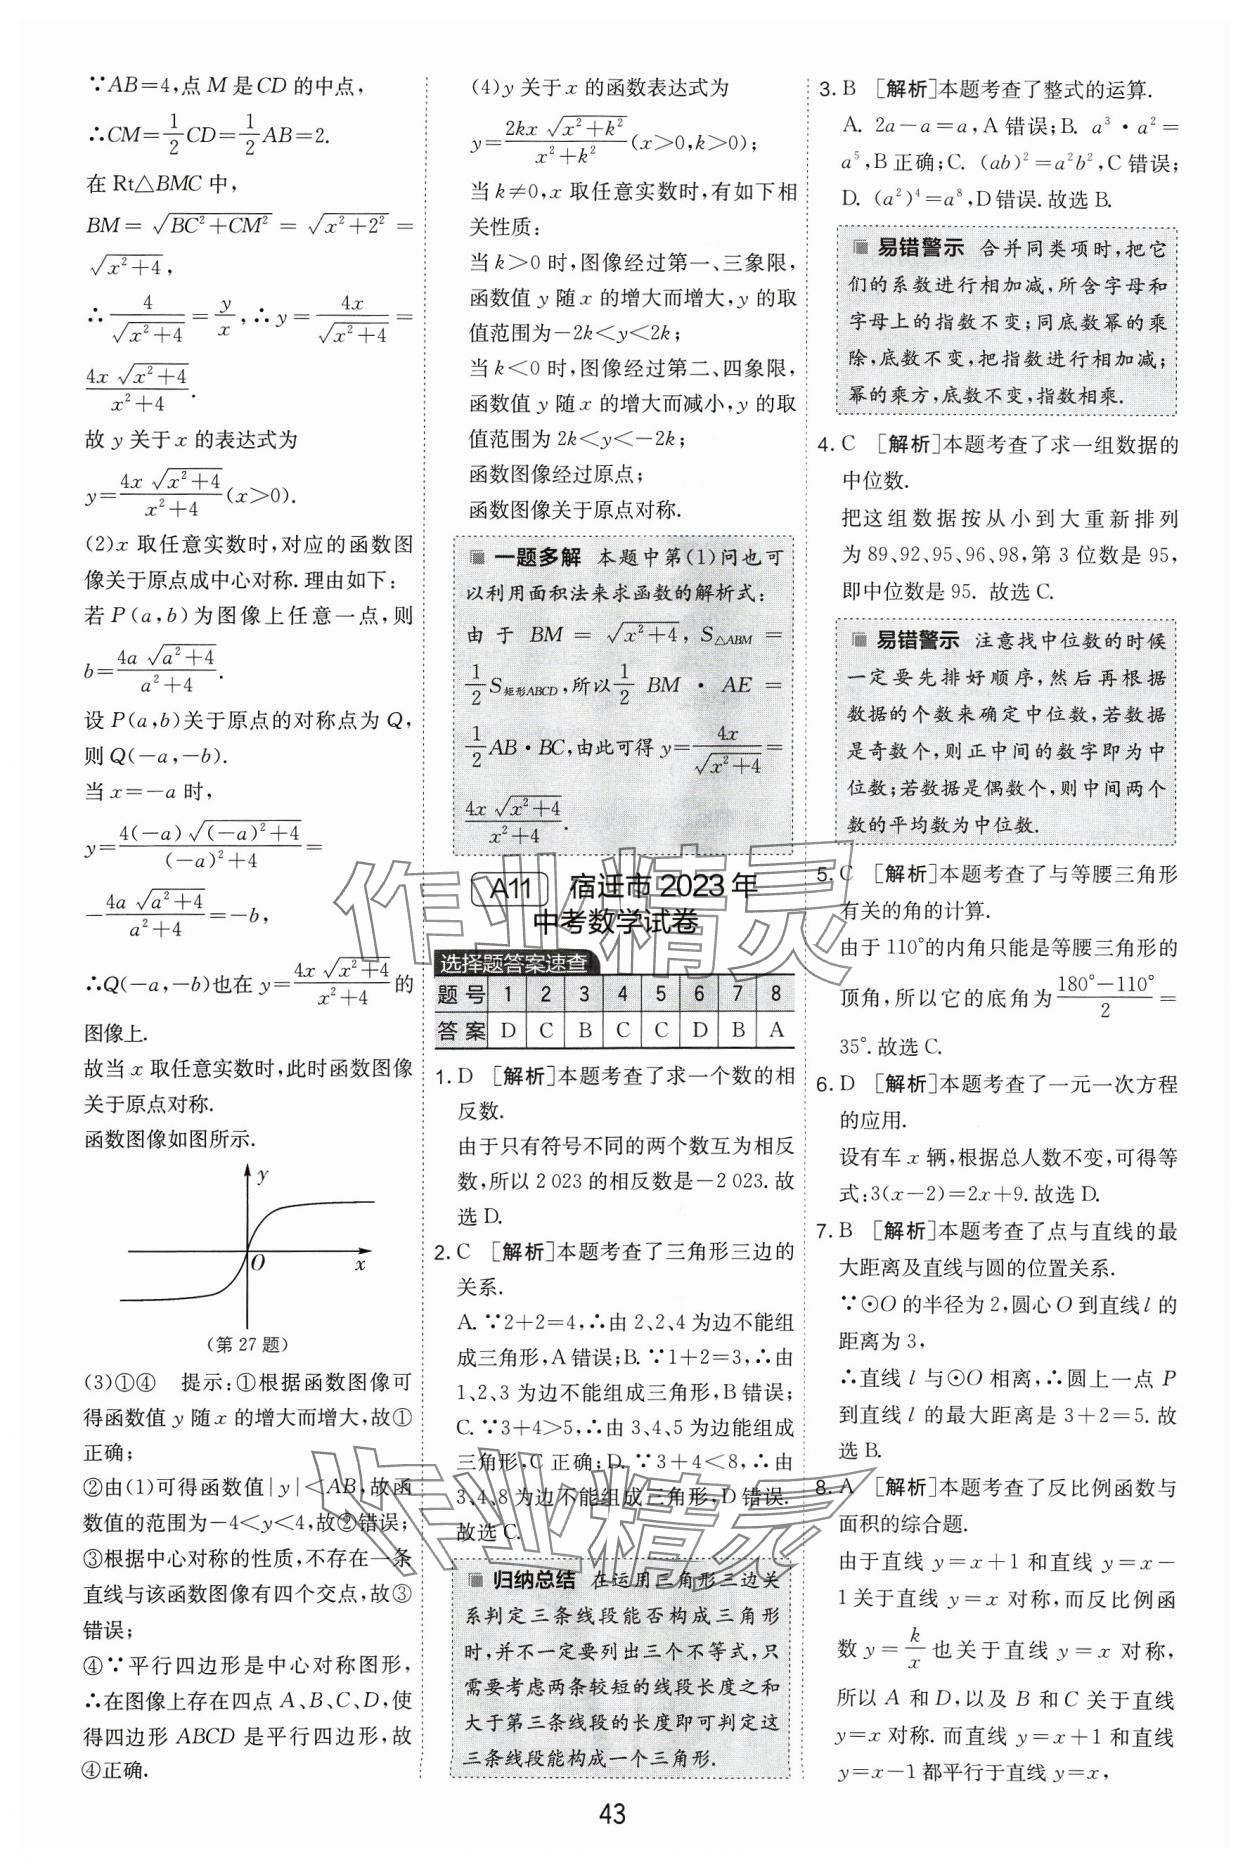 ∵AB=4,点 M 是 CD 的中点,
∴CM=1/2CD=1/2AB=2.
在 Rt△BMC 中,
BM=√(BC²+CM²)=√(x²+2²)=
√(x²+4),
∴4/√(x²+4)=y/x,∴y=4x/√(x²+4)=
4x√(x²+4)/(x²+4).
故 y 关于 x 的表达式为
y=4x√(x²+4)/(x²+4)(x>0).
(2)x 取任意实数时,对应的函数图
像关于原点成中心对称.理由如下:
若 P(a,b)为图像上任意一点,则
b=4a√(a²+4)/(a²+4).
设 P(a,b)关于原点的对称点为 Q,
则 Q(-a,-b).
当 x=-a 时,
y=4(-a)√((-a)²+4)/((-a)²+4)=
-4a√(a²+4)/(a²+4)=-b,
∴Q(-a,-b)也在 y=4x√(x²+4)/(x²+4)的
图像上.
故当 x 取任意实数时,此时函数图像
关于原点对称.
函数图像如图所示.
y
O
x
(第 27 题)
(3)①④ 提示:①根据函数图像可
得函数值 y 随 x 的增大而增大,故①
正确;
②由(1)可得函数值|y|<AB,故函
数值的范围为-4<y<4,故②错误;
③根据中心对称的性质,不存在一条
直线与该函数图像有四个交点,故③
错误;
④∵平行四边形是中心对称图形,
∴在图像上存在四点 A、B、C、D,使
得四边形 ABCD 是平行四边形,故
④正确.
(4)y 关于 x 的函数表达式为
y=2kx√(x²+k²)/(x²+k²)(x>0,k>0);
当 k≠0,x 取任意实数时,有如下相
关性质:
当 k>0 时,图像经过第一、三象限,
函数值 y 随 x 的增大而增大,y 的取
值范围为-2k<y<2k;
当 k<0 时,图像经过第二、四象限,
函数值 y 随 x 的增大而减小,y 的取
值范围为 2k<y<-2k;
函数图像经过原点;
函数图像关于原点对称.
一题多解 本题中第(1)问也可
以利用面积法来求函数的解析式:
由于 BM=√(x²+4),S△ABM=
1/2S矩形ABCD,所以1/2BM·AE=
1/2AB·BC,由此可得 y=4x/√(x²+4)=
4x√(x²+4)/(x²+4).
A11 宿迁市 2023 年
中考数学试卷
选择题答案速查
题号 1 2 3 4 5 6 7 8
答案 D C B C C D B A
1. D [解析]本题考查了求一个数的相
反数.
由于只有符号不同的两个数互为相反
数,所以 2 023 的相反数是-2 023.故
选 D.
2. C [解析]本题考查了三角形三边的
关系.
A.∵2+2=4,∴由 2、2、4 为边不能组
成三角形,A 错误;B.∵1+2=3,∴由
1、2、3 为边不能组成三角形,B 错误;
C.∵3+4>5,∴由 3、4、5 为边能组成
三角形,C 正确;D.∵3+4<8,∴由
3、4、8 为边不能组成三角形,D 错误.
故选 C.
归纳总结 在运用三角形三边关
系判定三条线段能否构成三角形
时,并不一定要列出三个不等式,只
需要考虑两条较短的线段长度之和
大于第三条线段的长度即可判定这
三条线段能构成一个三角形.
3. B [解析]本题考查了整式的运算.
A. 2a-a=a,A 错误;B. a³·a²=
a⁵,B 正确;C. (ab)²=a²b²,C 错误;
D. (a²)⁴=a⁸,D 错误.故选 B.
易错警示 合并同类项时,把它
们的系数进行相加减,所含字母和
字母上的指数不变;同底数幂的乘
除,底数不变,把指数进行相加减;
幂的乘方,底数不变,指数相乘.
4. C [解析]本题考查了求一组数据的
中位数.
把这组数据按从小到大重新排列
为 89、92、95、96、98,第 3 位数是 95,
即中位数是 95. 故选 C.
易错警示 注意找中位数的时候
一定要先排好顺序,然后再根据
数据的个数来确定中位数,若数据
是奇数个,则正中间的数字即为中
位数;若数据是偶数个,则中间两个
数的平均数为中位数.
5. C [解析]本题考查了与等腰三角形
有关的角的计算.
由于 110°的内角只能是等腰三角形的
顶角,所以它的底角为(180°-110°)/2=
35°.故选 C.
6. D [解析]本题考查了一元一次方程
的应用.
设有车 x 辆,根据总人数不变,可得等
式:3(x-2)=2x+9.故选 D.
7. B [解析]本题考查了点与直线的最
大距离及直线与圆的位置关系.
∵⊙O 的半径为 2,圆心 O 到直线 l 的
距离为 3,
∴直线 l 与⊙O 相离,∴圆上一点 P
到直线 l 的最大距离是 3+2=5.故
选 B.
8. A [解析]本题考查了反比例函数与
面积的综合题.
由于直线 y=x+1 和直线 y=x-
1 关于直线 y=x 对称,而反比例函
数 y=k/x 也关于直线 y=x 对称,
所以 A 和 D,以及 B 和 C 关于直线
y=x 对称.而直线 y=x+1 和直线
y=x-1 都平行于直线 y=x,
43
作业精灵
作业精灵